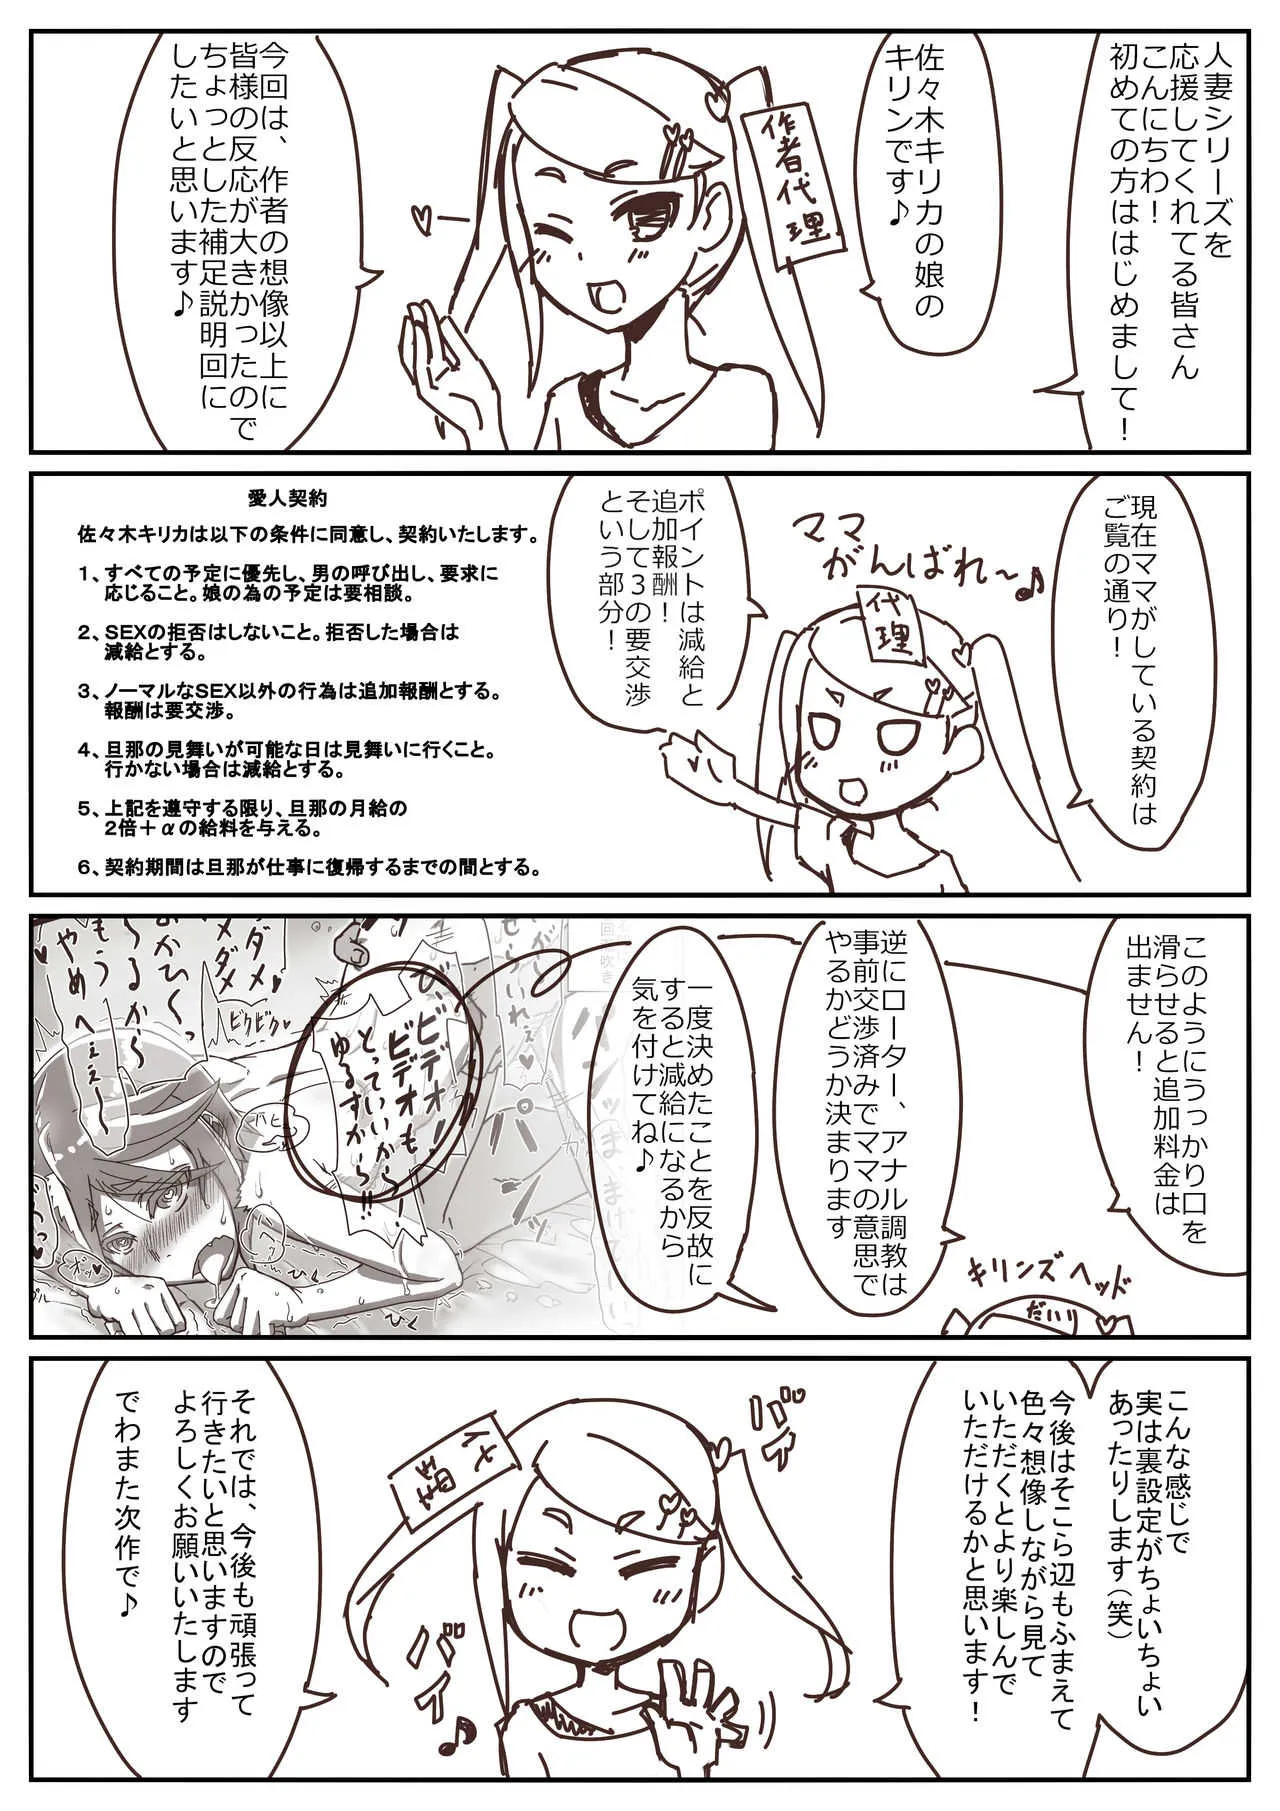 人妻シリーズを
応援してくれてる皆さん
こんにちわ！
初めての方ははじめまして！
佐々木キリカの娘の
キリンです♪
作者代理
今回は、作者の想像以上に
皆様の反応が大きかったので
ちょっとした補足説明回に
したいと思います♪
現在ママがしている契約は
ご覧の通り！
ママ
がんばれ～♪
代理
ポイントは減給と
追加報酬！
そして３の要交渉
という部分！
愛人契約
佐々木キリカは以下の条件に同意し、契約いたします。
１、すべての予定に優先し、男の呼び出し、要求に
応じること。娘の為の予定は要相談。
２、SEXの拒否はしないこと。拒否した場合は
減給とする。
３、ノーマルなSEX以外の行為は追加報酬とする。
報酬は要交渉。
４、旦那の見舞いが可能な日は見舞いに行くこと。
行かない場合は減給とする。
５、上記を遵守する限り、旦那の月給の
２倍＋αの給料を与える。
６、契約期間は旦那が仕事に復帰するまでの間とする。
このようにうっかり口を
滑らせると追加料金は
出ません！
逆にローター、アナル調教は
事前交渉済みでママの意思で
やるかどうか決まります
一度決めたことを反故に
すると減給になるから
気を付けてね♪
キリンズヘッド
だいり
ビ、ビデオ！
ビデオも
とっていいから！
ゆるすから！！
ダメ
ダメダメ
おかひくっ
なるから～
もう
やめへぇぇ～
ビクビク♥
こんな感じで
実は裏設定がちょいちょい
あったりします（笑）
今後はそこら辺もふまえて
色々想像しながら見て
いただくとより楽しんで
いただけるかと思います！
バイ
バイ♪
それでは、今後も頑張って
行きたいと思いますので
よろしくお願いいたします
でわまた次作で♪